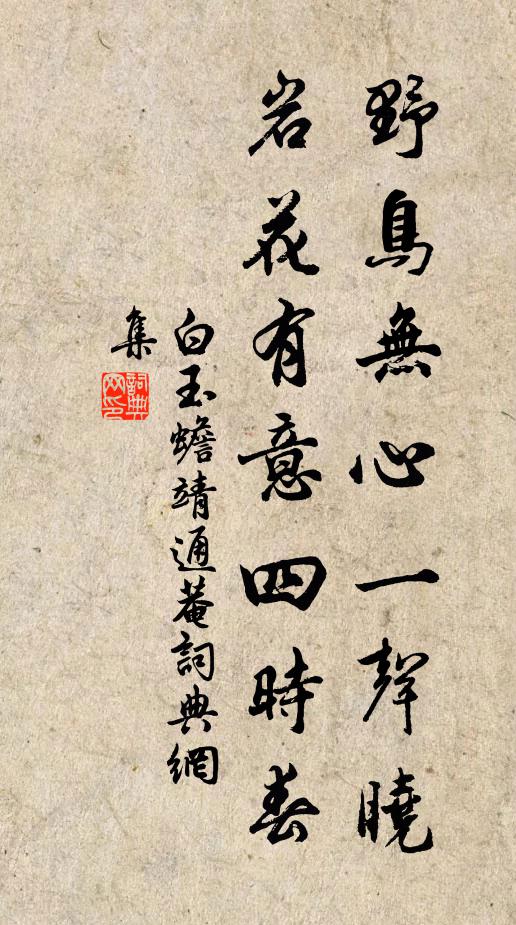 野鳥無心一聲曉
岩花有意四時春
白玉蟾靖通菴詞典網
集
詞典
网印